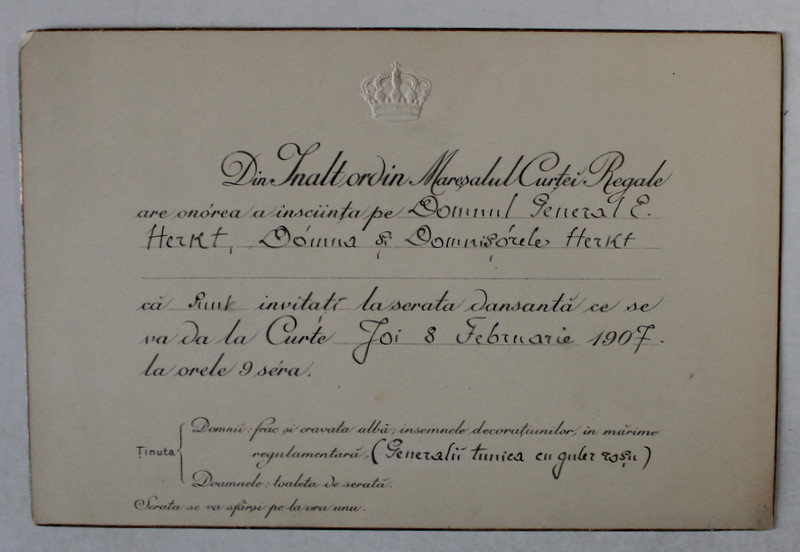 Din Inalt ordin Mareșalul Curței Regale
are onórea a însciința pe Domnul General E.
Herkt, Dómna și Domnișórele Herkt
că sunt invitați la serata dansantă ce se
va da la Curte Joi 8 Februarie 1907.
la orele 9 séra.
Domnii: frac și cravata albă; insemnele decorațiunilor, în mărime
Ținuta regulamentară. (Generalii tunica cu guler roșu)
Doamnele: toaleta de serată.
Serata se va sfârși pe la ora unu.